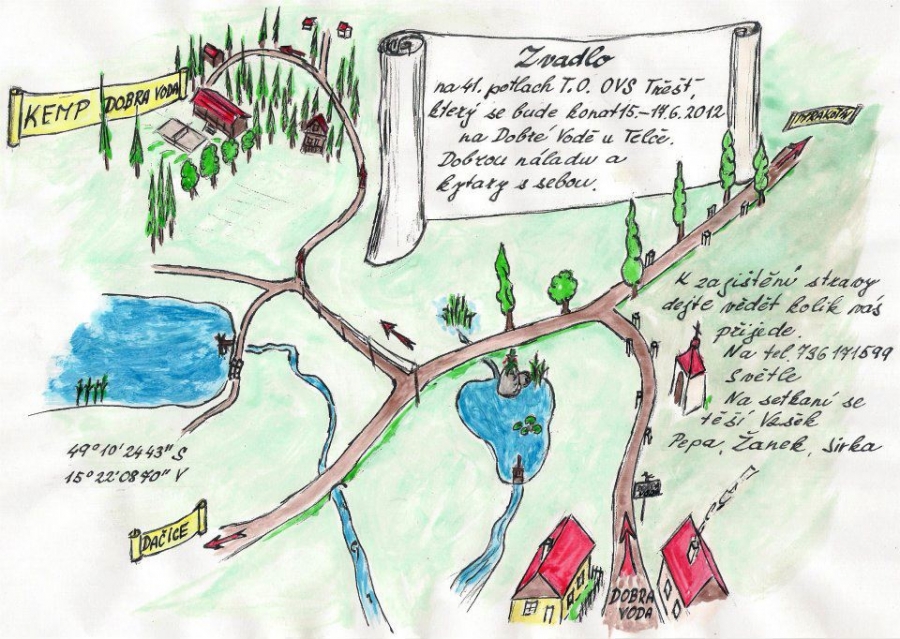 Zvadlo
na 41. potlach T.O. OVS Třešť,
který se bude konat 15.–17.6.2012
na Dobré Vodě u Telče.
Dobrou náladu a
kytary s sebou.
KEMP DOBRÁ VODA
MRÁKOTÍN
K zajištění stravy
dejte vědět kolik vás
přijede.
Na tel. 736 171 599
Světle
Na setkaní se
těší Vašek
Pepa, Žanek, Jirka
49°10'2443" S
15°22'0870" V
DAČICE
DOBRÁ
VODA